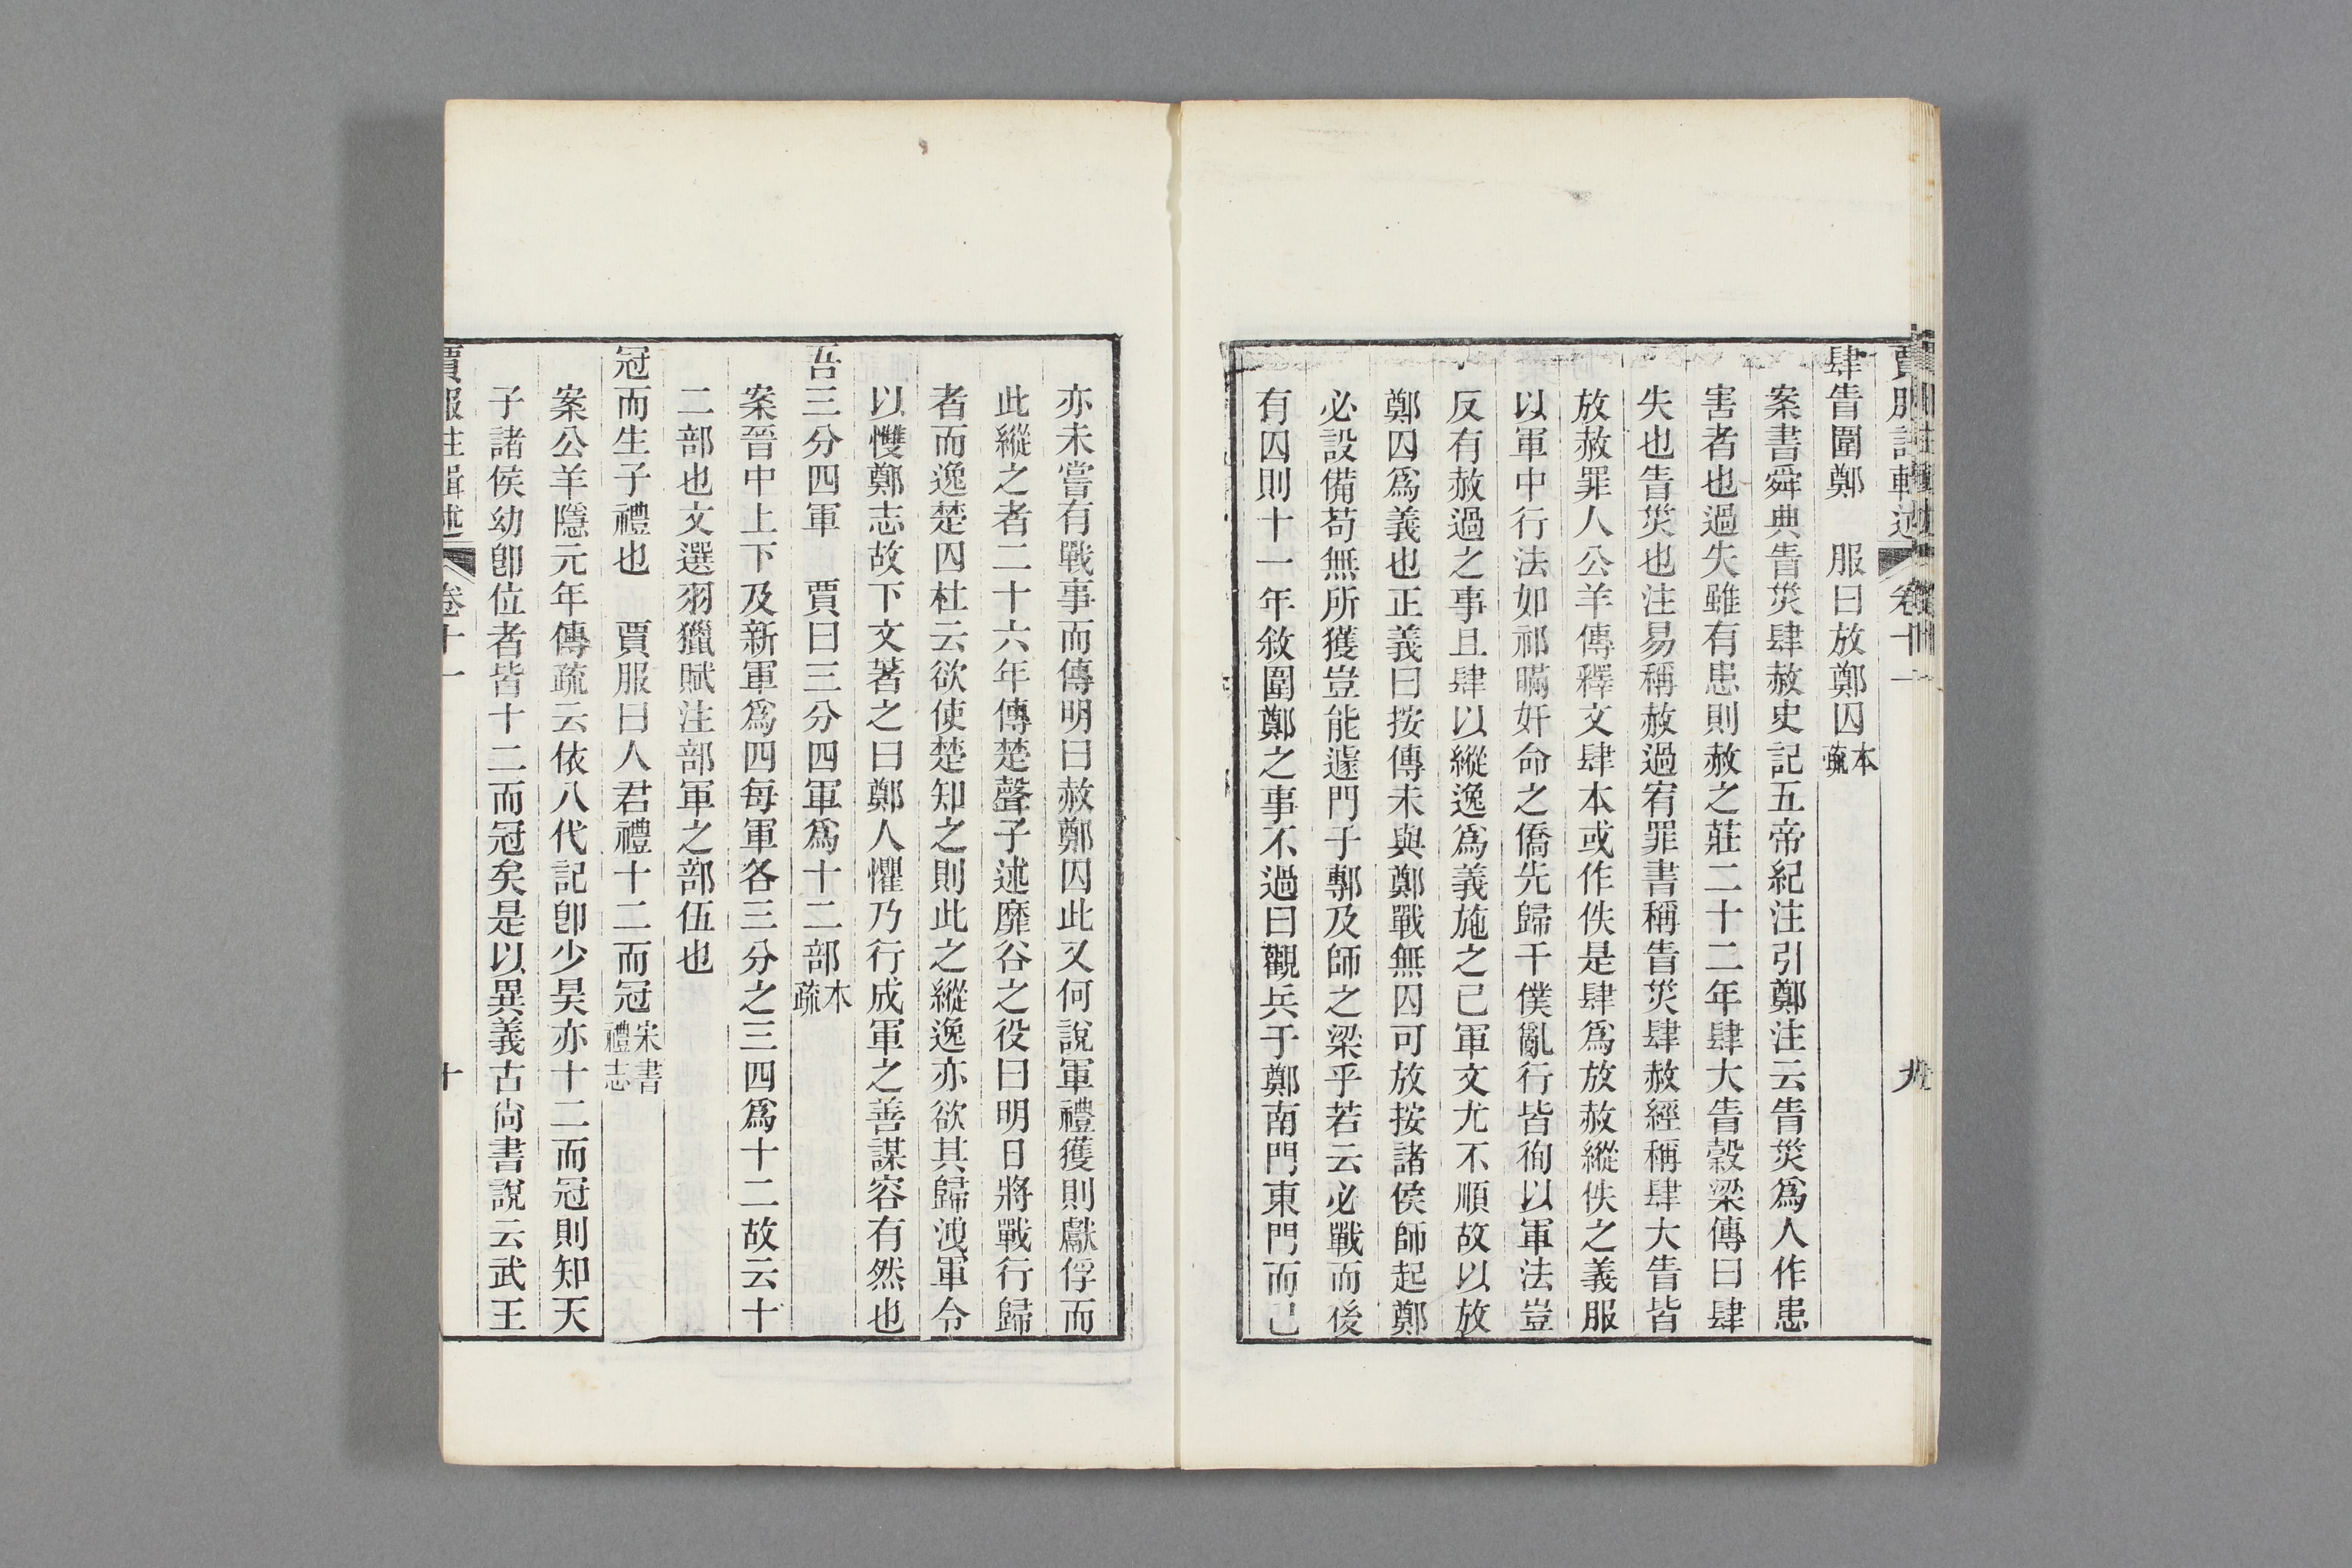 肆眚圍鄭　服曰放鄭囚本疏
案書舜典眚烖肆赦史記五帝紀注引鄭注云眚烖爲人作患
害者也過失雖有患則赦之莊二十二年肆大眚穀梁傳曰肆
失也眚災也注易稱赦過宥罪書稱眚烖肆赦經稱肆大眚皆
放赦罪人公羊傳釋文肆本或作佚是肆爲放赦縱佚之義服
以軍中行法如祁瞞奸命之僑先歸干僕亂行皆徇以軍法豈
反有赦過之事且肆以縱逸爲義施之已軍文尤不順故以放
鄭囚爲義也正義曰按傳未與鄭戰無囚可放按諸侯師起鄭
必設備苟無所獲豈能遽門于鄟及師之梁乎若云必戰而後
有囚則十一年敘圍鄭之事不過曰觀兵于鄭南門東門而已
賈服注輯述 卷十一 九
亦未嘗有戰事而傳明曰赦鄭囚此又何說軍禮獲則獻俘而
此縱之者二十六年傳楚聲子述靡谷之役曰明日將戰行歸
者而逸楚囚杜云欲使楚知之則此之縱逸亦欲其歸洩軍令
以慴鄭志故下文著之曰鄭人懼乃行成軍之善謀容有然也
吾三分四軍　賈曰三分四軍爲十二部本疏
案晉中上下及新軍爲四每軍各三分之三四爲十二故云十
二部也文選羽獵賦注部軍之部伍也
冠而生子禮也　賈服曰人君禮十二而冠宋書禮志
案公羊隱元年傳疏云依八代記卽少昊亦十二而冠則知天
子諸侯幼卽位者皆十二而冠矣是以異義古尙書說云武王
賈服注輯述 卷十一 十